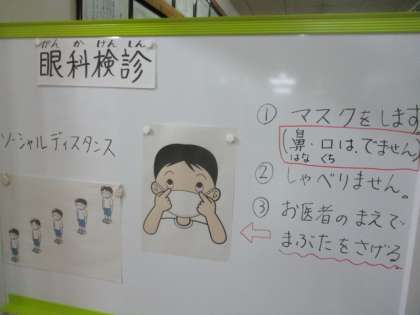 がんかけんしん
眼科検診
ソーシャルディスタンス
① マスクをします
(鼻・口は、でません)
はな くち
② しゃべりません。
③ お医者のまえで
まぶたをさげる